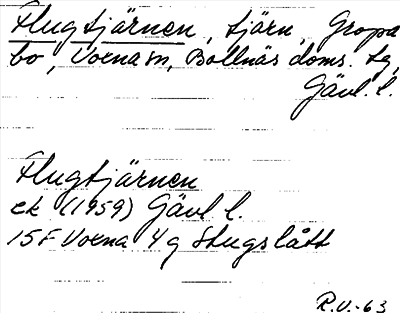 Flugtjärnen, tjärn, Gropa
bo, Voxna sn, Bollnäs doms. tg,
Gävl. l.
Flugtjärnen
ek (1959) Gävl l.
15F Voxna 4g Stugslått
R.V.-63